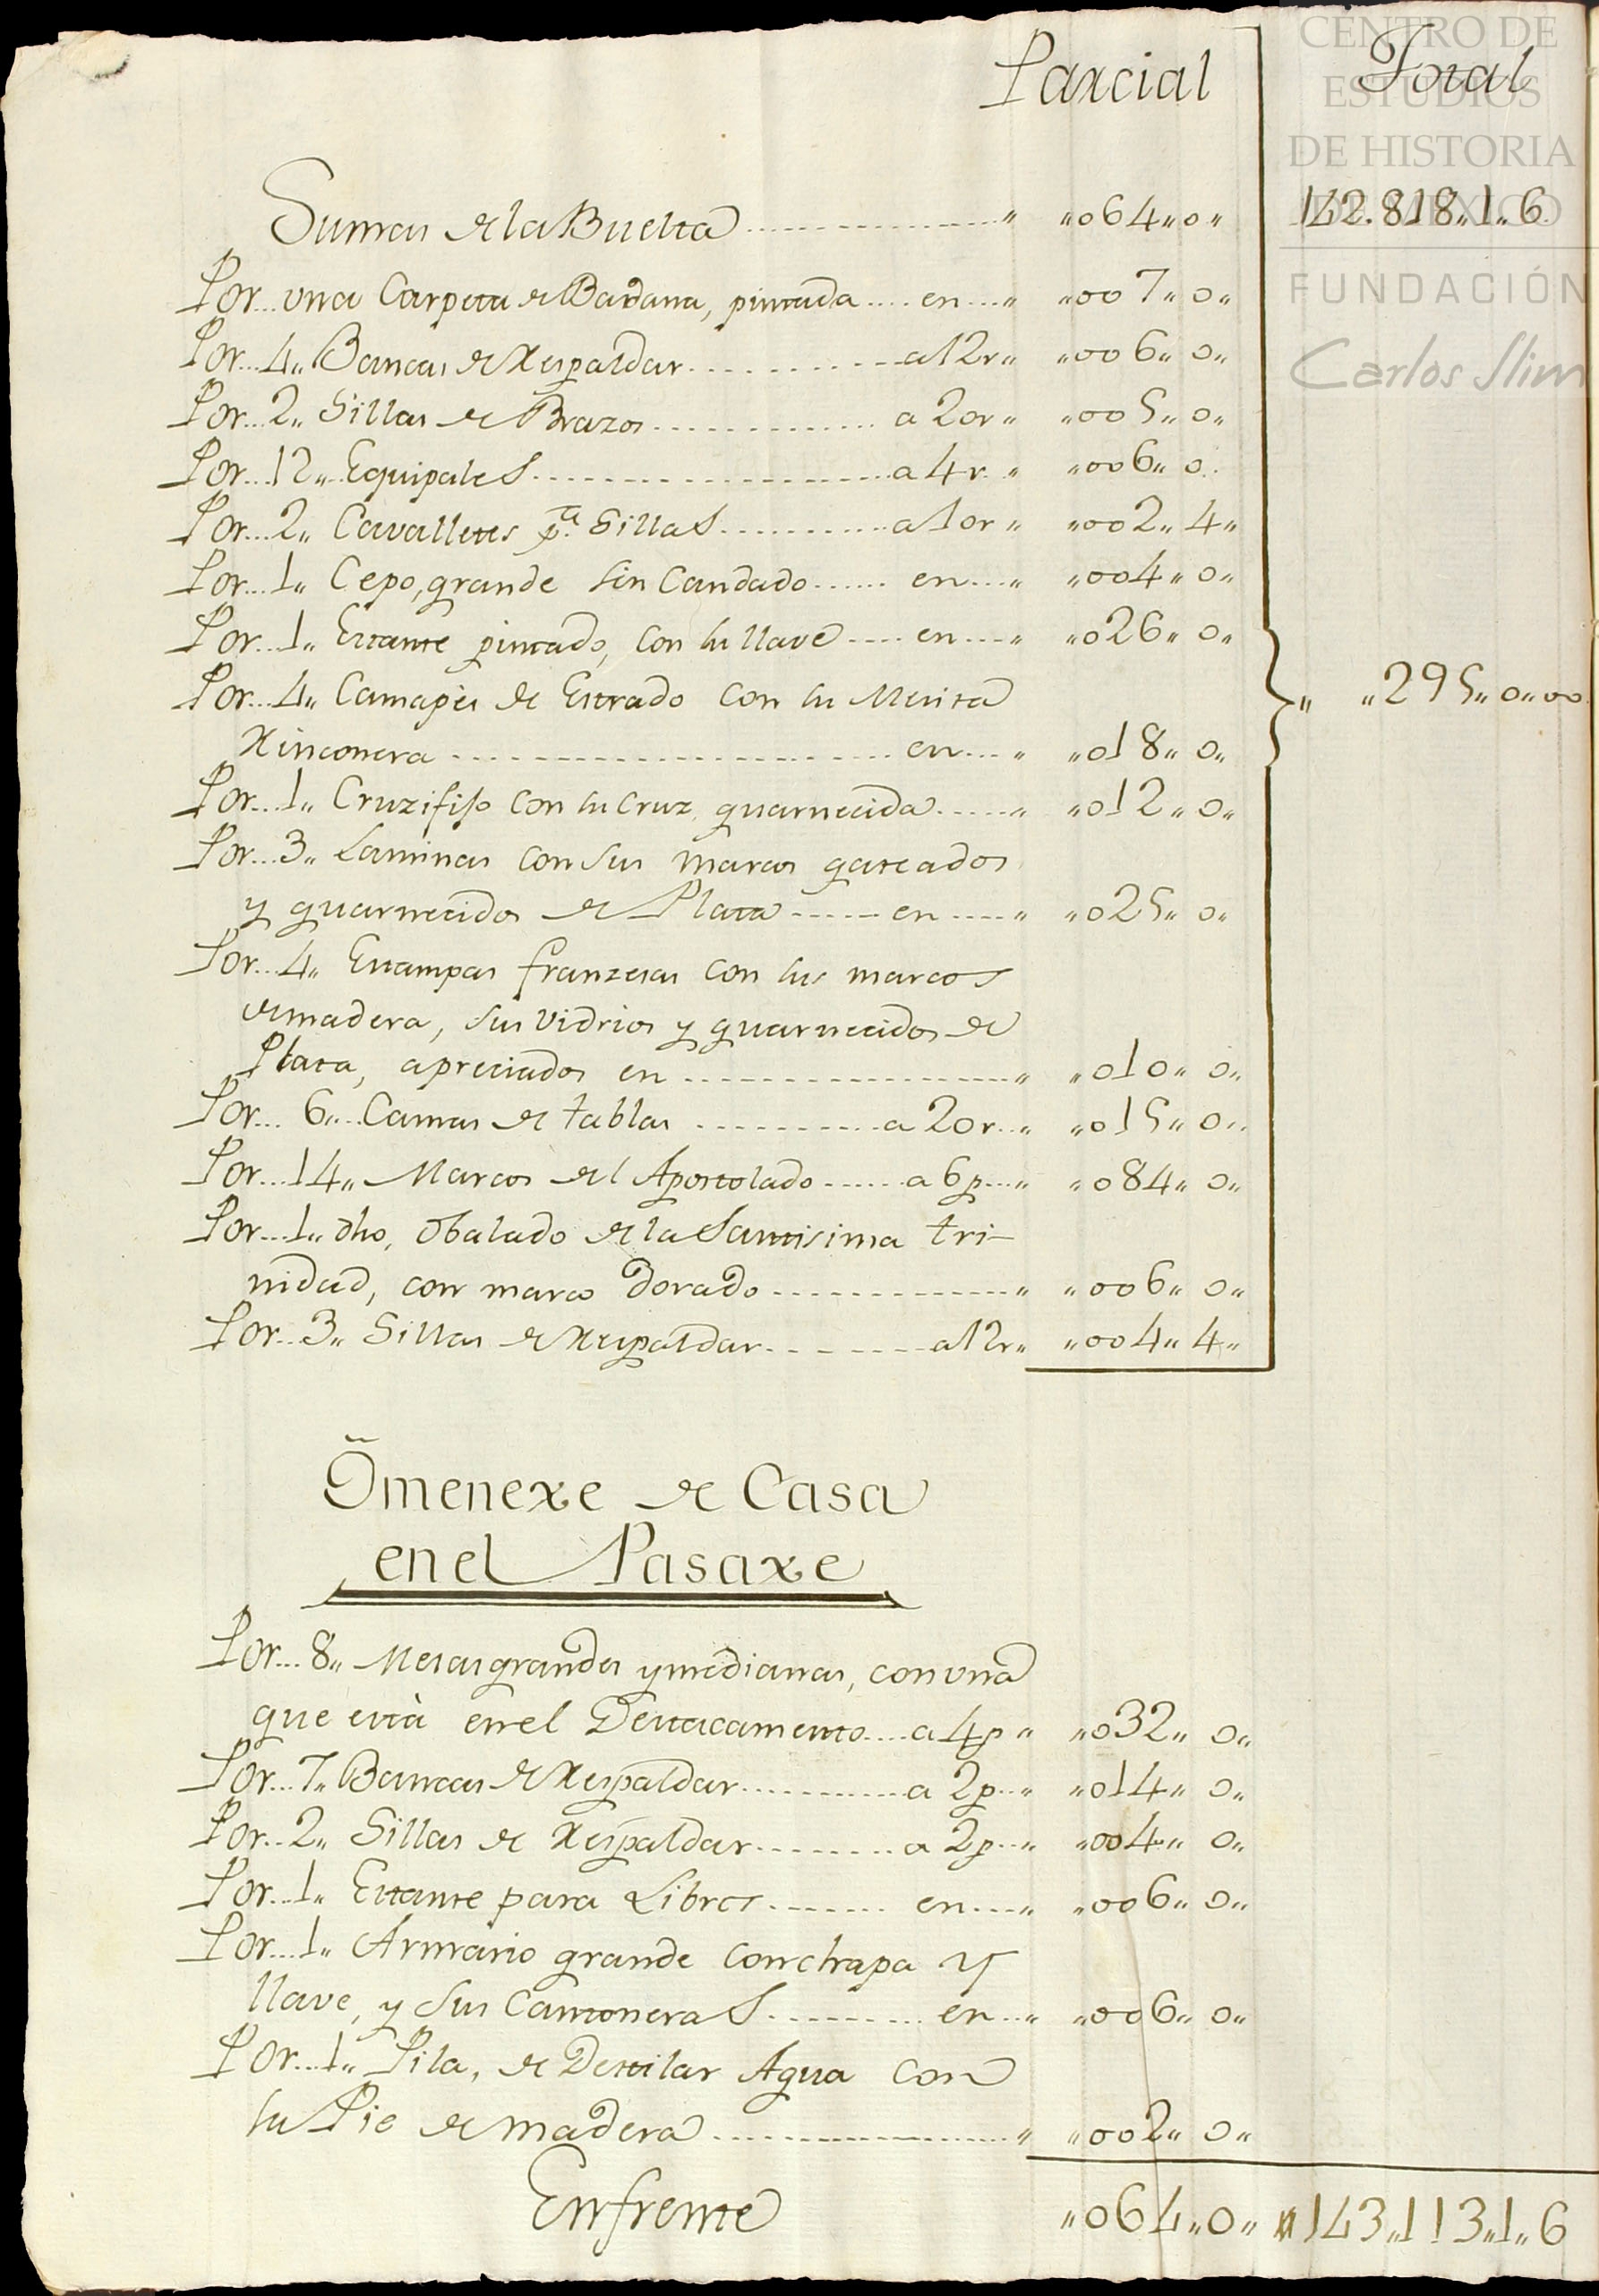 Parcial Total
CENTRO DE
ESTUDIOS
DE HISTORIA
DE MÉXICO
FUNDACIÓN
Carlos Slim
Sumas de la Buelta " "064"0" 142.818"1"6
Por 1 una Carpeta de Badana, pintada en " "007"0"
Por 4" Bancas de Respaldar a 12r" "006"0"
Por 2" Sillas de Brazos a 20r" "005"0"
Por 12" Equipales a 4r" "006"0
Por 2" Cavalletes pa. Sillas a 10r" "002"4"
Por 1" Cepo, grande sin Candado en " "004"0"
Por 1" Estante pintado, con su llave en " "026"0"
Por 4" Camapés de Estrado con su Mesita
Rinconera en " "018"0" " "295"0"00
Por 1" Cruzifijo con su Cruz guarnecida " "012"0"
Por 3" Laminas con sus marcos gateados
y guarnecidos de Plata en " "025"0"
Por 4" Estampas franzesas con sus marcos
de madera, sus vidrios y guarnecidos de
Plata, apreciados en " "010"0"
Por 6" Camas de tablas a 20r " "015"0"
Por 14" Marcos del Apostolado a 6p " "084"0"
Por 1" dho, Obalado de la Santisima tri-
nidad, con marco dorado " "006"0"
Por 3" Sillas de Respaldar a 12r" "004"4"
Omenexe de Casa
en el Pasaxe
Por 8" Mesas grandes y medianas, con una
que està en el Destacamento a 4p " "032"0"
Por 7" Bancas de Respaldar a 2p " "014"0"
Por 2" Sillas de Respaldar a 2p " "004"0"
Por 1" Estante para Libros en " "006"0"
Por 1" Armario grande con chapa y
llave, y sus Cantoneras en " "006"0"
Por 1" Pila, de Destilar Agua con
su Pie de madera " "002"0"
Enfrente "064"0" "143"113"1"6